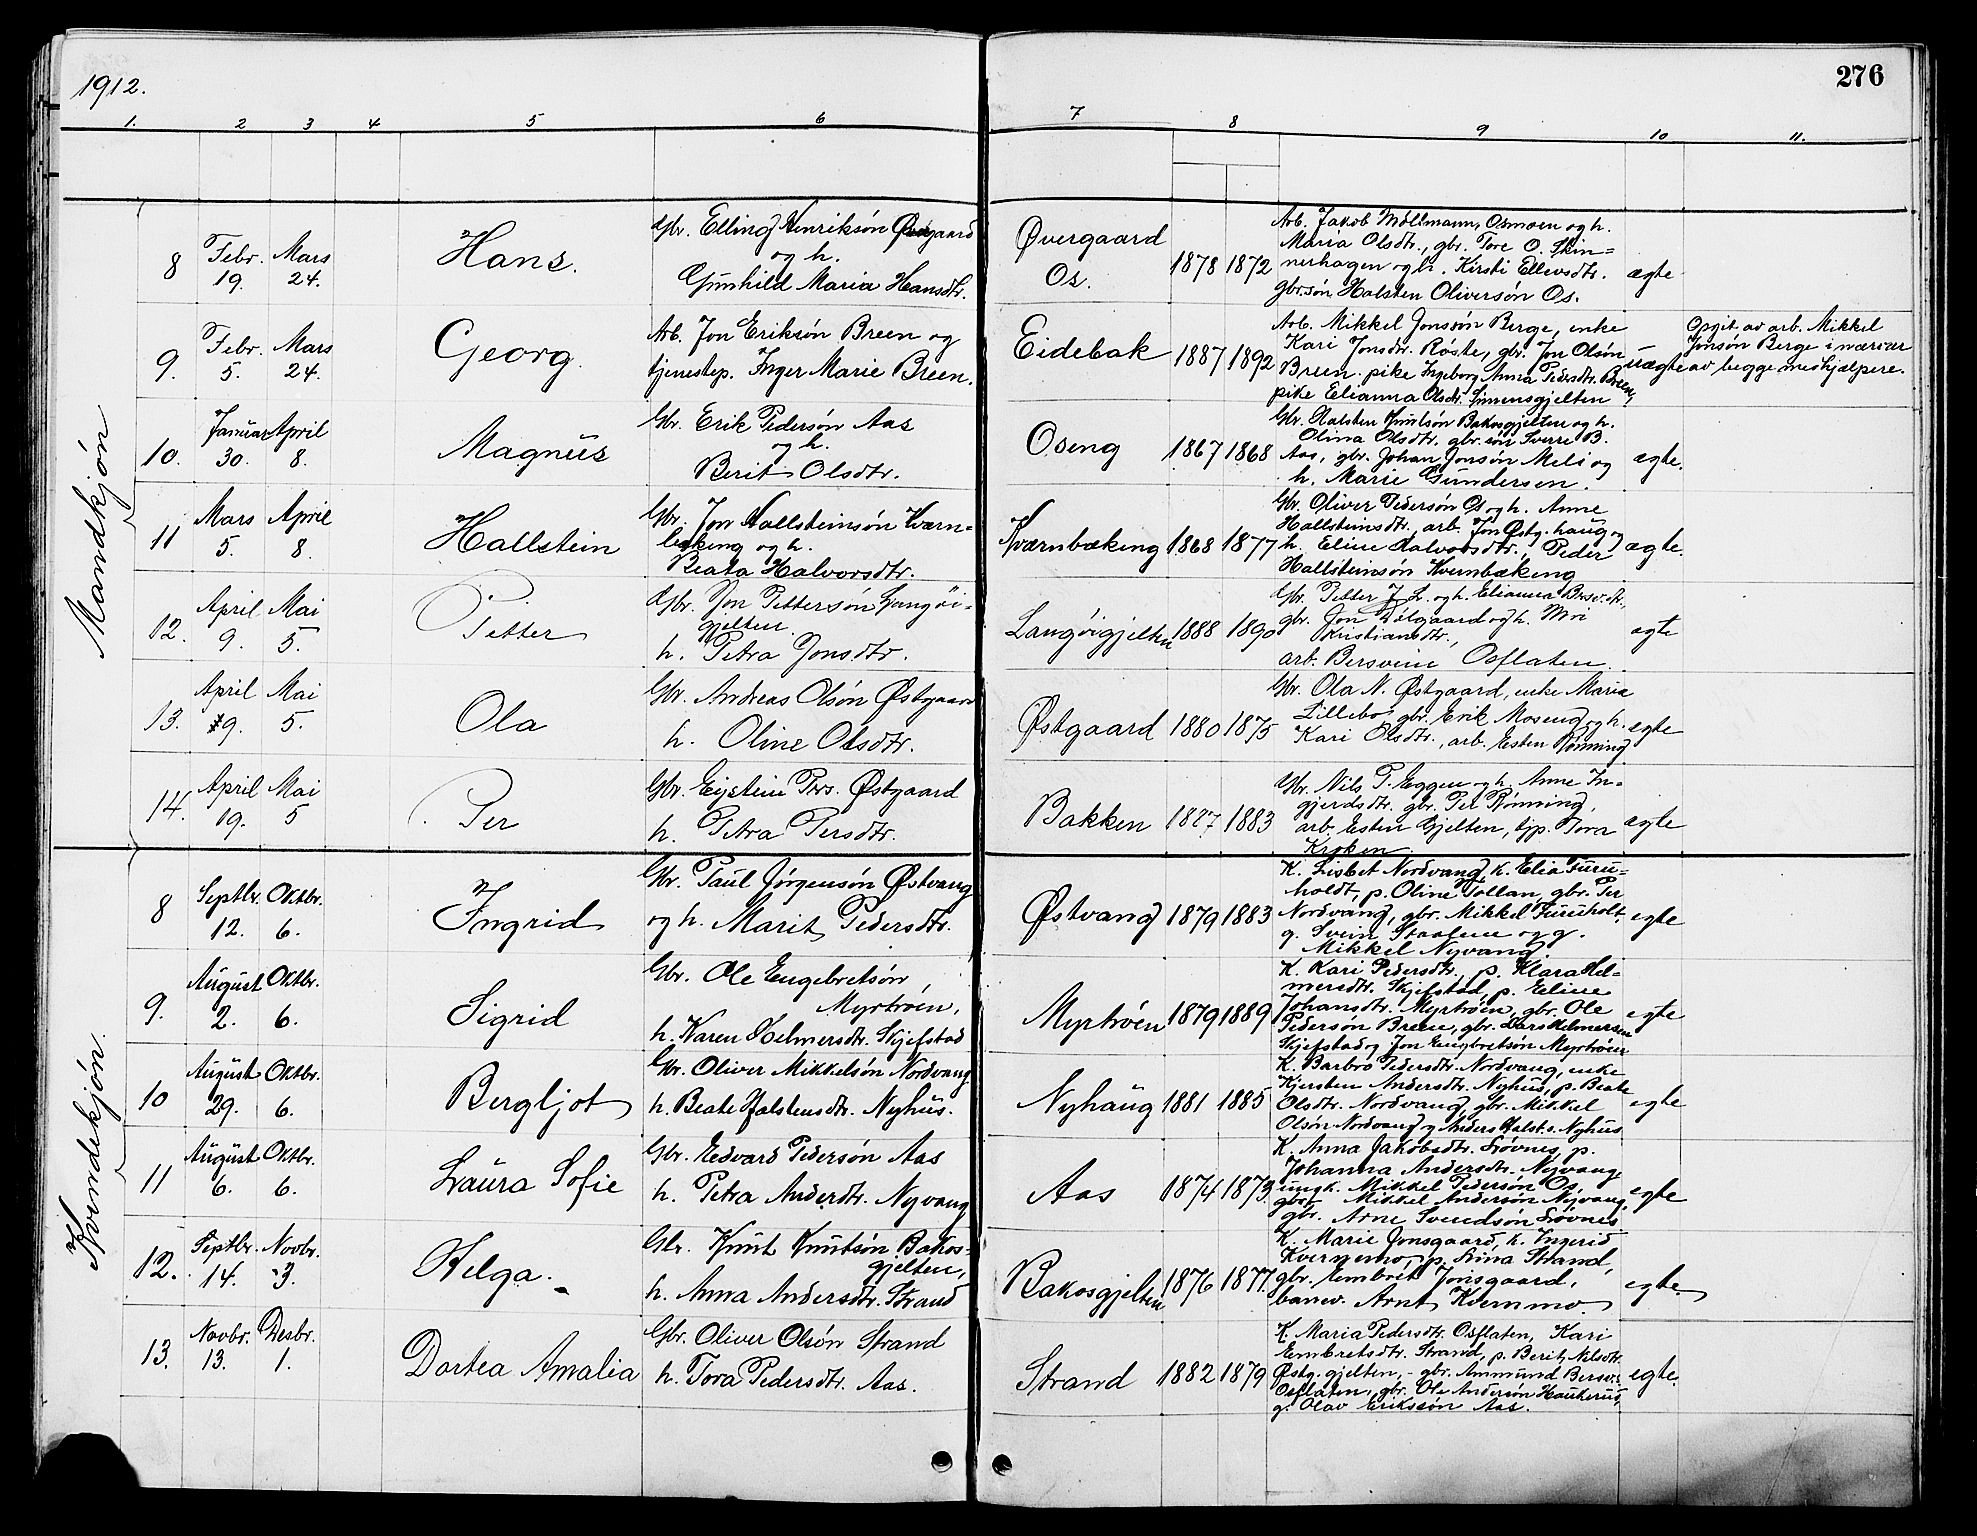 1912.
276
1. 2 3 4 5 6 7 8 9 10 11.
Mandkjøn
8
Febr. 19.
Mars 24.
Hans.
Gbr. Elling Henriksøn Øvergaard
og h.
Gunhild Maria Hansdtr.
Øvergaard
Os.
1878 1872
Arb. Jakob Møllmann, Osmoen og h.
Maria Olsdtr., gbr. Tore O. Skin-
nerhagen og h. Kirsti Ellevsdtr.
gbr.søn Halsten Oliversøn Os.
ægte
9.
Febr. 5.
Mars 24.
Georg.
Arb. Jon Eriksøn Breen og
tjenestep. Inger Marie Breen.
Eidebak
1887 1892
Arb. Mikkel Jonsøn Berge, enke
Kari Jonsdtr. Røste, gbr. Jon Olsøn
Breen. pike Ingeborg Anna Pedersdtr. Breen,
pike Elianna Olsdtr. Simensgjelten
uægte
Opgit av arb. Mikkel
Jonsøn Berge i nærvær
av begge medhjælpere.
10.
Januar 30.
April 8.
Magnus
Gbr. Erik Pedersøn Aas
og h.
Berit Olsdtr.
Oseng
1867 1868
Gbr. Halsten Knutsøn Bakosgjelten og h.
Olina Olsdtr. gbr. søn Sverre B.
Aas, gbr. Johan Jonsøn Meli og
h. Marie Gundersen.
ægte.
11
Mars 5.
April 8.
Hallstein
Gbr. Jon Hallsteinsøn Kværn-
bekking og h.
Beata Halvorsdtr.
Kværnbækeng
1868 1877
Gbr. Oliver Pedersøn Os og h. Anne
Hallsteinsdtr. arb. Jon Østg. haug og
h. Eline Halvorsdtr., Peder
Hallsteinsøn Kvernbækeng
ægte.
12.
April 9.
Mai 5.
Petter
Gbr. Jon Pettersøn Langøi-
gjelten
h. Petra Jonsdtr.
Langøigjelten
1888 1890
Gbr. Petter J. L. og h. Elianna Bersv.dtr.,
gbr. Jon Dølgaard og h. Mri
Kristiansdtr.,
arb. Bersvein Osflaten.
ægte
13.
April 9.
Mai 5.
Ola
Gbr. Andreas Olsøn Østgaard
h. Oline Olsdtr.
Østgaard
1880 1875
Gbr. Ola N. Østgaard, enke Maria
Lillebo, gbr. Erik Moseng og h.
Kari Olsdtr., arb. Esten Rønning
egte
14.
April 19.
Mai 5
Per
Gbr. Eystein Prs. Østgaard
h. Petra Persdtr.
Bakken
1887 1883
Gbr. Nils P. Eggen og h. Anne In-
gjerdsdtr. gbr. Per Rønning,
arb. Esten Gjelten, tjp. Tora
Kroken
ægte
Kvindekjøn.
8
Septbr. 12.
Oktbr. 6.
Ingrid
Gbr. Paul Jørgensøn Østvang
og h. Marit Pedersdtr.
Østvang
1879 1883
K. Lisbet Nordvang, k. Elia Furu-
holdt, p. Oline Tollan, gbr. Per
Nordvang, gbr. Mikkel Furuholt,
g. Svein Staalene og g.
Mikkel Nyvang
egte
9.
August 2.
Oktbr. 6.
Sigrid
Gbr. Ole Engebretsøn
Myrtrøen,
h. Karen Helmersdtr. Skjefstad
Myrtrøen
1879 1889
K. Kari Pedersdtr., p. Klara Hel-
mersdtr. Skjefstad p. Eline
Johansdtr. Myrtrøen, gbr. Ole
Pedersøn Breen, gbr. Lars Helmersen
Skjefstad og Jon Engbretsøn Myrtrøen
egte
10
August 29.
Oktbr. 6.
Bergljot
Gbr. Oliver Mikkelsøn Nordvang
h. Beate Halstensdtr. Nyhus.
Nyhaug
1881 1885
K. Barbro Pedersdtr. Nordvang, enke
Kjersten Andersdtr. Nyhus, p. Beate
Olsdtr. Nordvang, gbr. Mikkel
Olsøn Nordvang og Anders Halst.s. Nyhus
egte
11
August 6.
Oktbr. 6.
Laura Sofie
Gbr. Edvard Pedersøn Aas
h. Petra Anderdtr. Nyvang
Aas
1874 1873
K. Anna Jakobsdtr. Løvnes, p.
Johanna Andersdtr. Nyvang
ungk. Mikkel Pedersøn Os,
gbr. Mikkel Andersøn Nyvang,
gbr. Arne Svendsøn Løvnes
egte
12.
Septbr. 14.
Novbr. 3.
Helga.
Gbr. Knut Knutsøn Bakos-
gjelten,
h. Anna Andersdtr. Strand
Bakosgjelten
1876 1877.
K. Marie Jonsgaard, k. Ingerid
Kvernemo, p. Lina Strand,
gbr. Embret Jonsgaard,
banev. Arnt Kvernmo.
egte
13.
Novbr. 13.
Desbr. 1.
Dortea Amalia
Gbr. Oliver Olsøn Strand
h. Tora Pedersdtr. Aas.
Strand
1882 1879
K. Maria Pedersdtr. Osflaten, Kari
Embretsdtr. Strand, p. Berit Nilsdtr.
Østg. gjelten, - gbr. Ammund Bersv.s.
Osflaten, gbr. Ole Andersøn Haukerud,
g. Olav Erikssøn Aas.
egte.